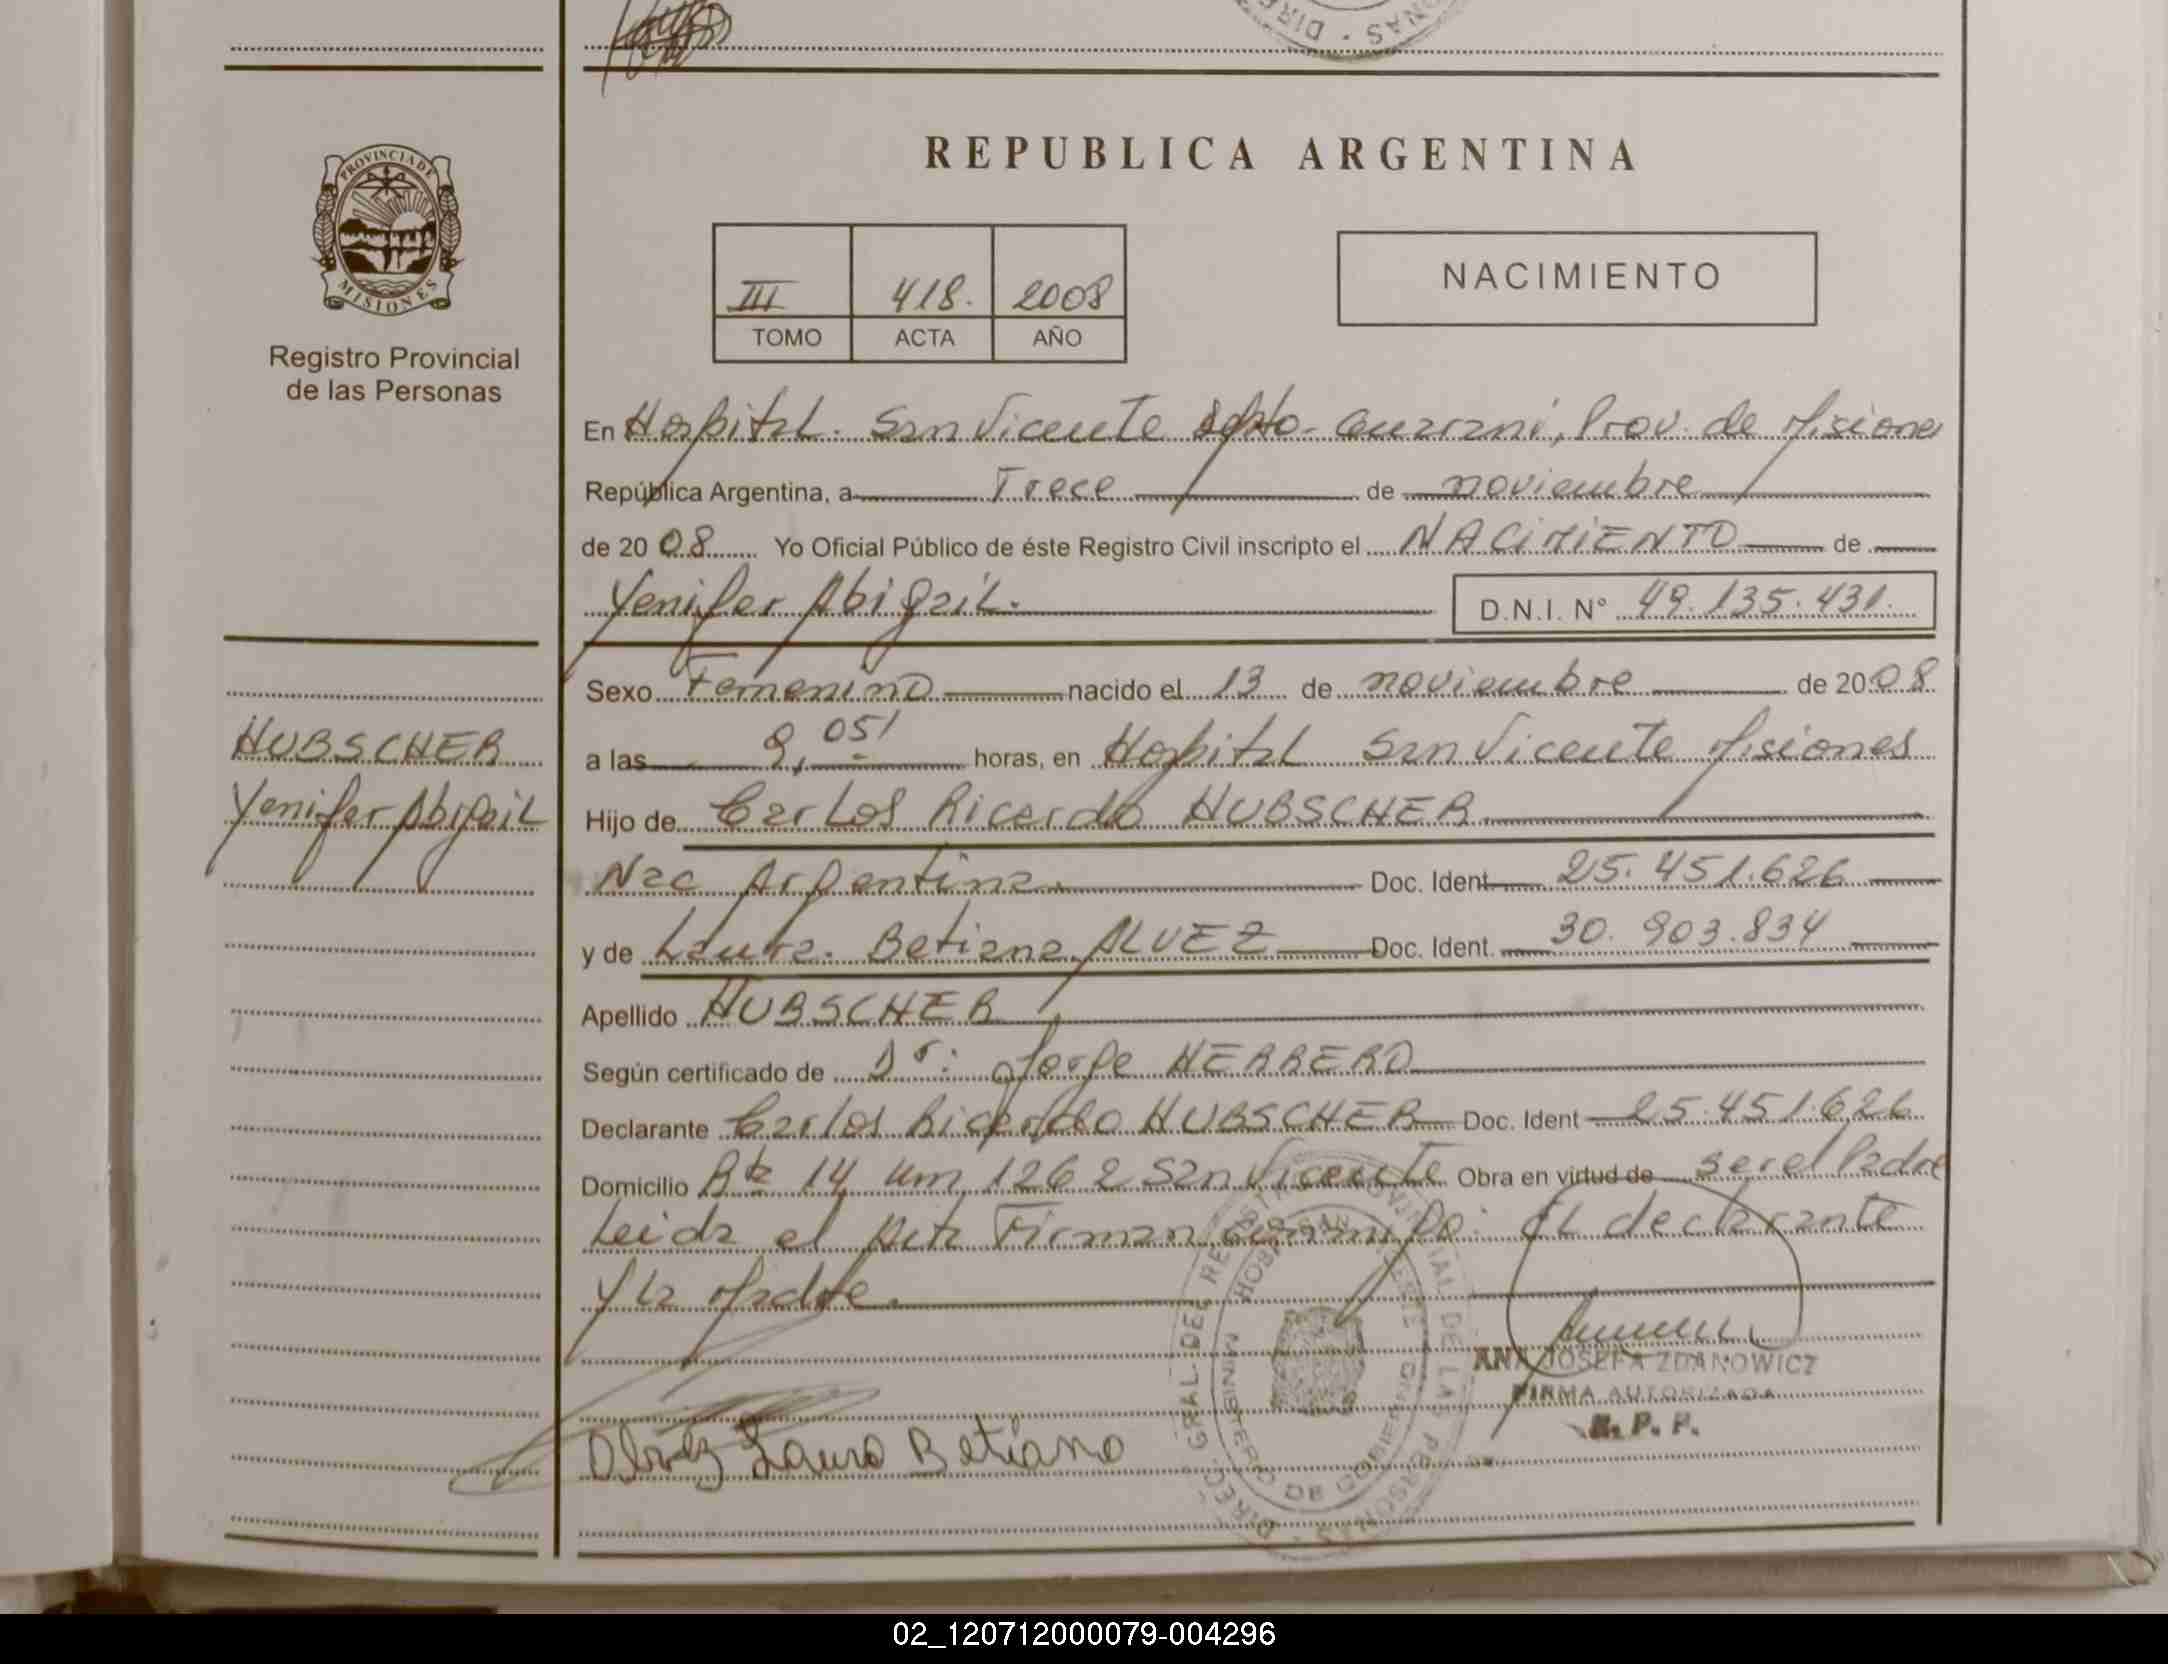 REPUBLICA ARGENTINA
PROVINCIA DE
MISIONES
Registro Provincial
de las Personas
III 418. 2008
TOMO ACTA AÑO
NACIMIENTO
En Hospital. San Vicente Dpto. Guaraní, Prov. de Misiones
República Argentina, a Trece de noviembre
de 2008 Yo Oficial Público de éste Registro Civil inscripto el NACIMIENTO de
Yenifer Abigail. D.N.I. N° 49.135.431.
Sexo Femenino nacido el 13 de noviembre de 2008
HUBSCHER
Yenifer Abigail
a las 9,05' horas, en Hospital San Vicente Misiones
Hijo de Carlos Ricardo HUBSCHER
Nac Argentina. Doc. Ident 25.451.626
y de Laura. Betiana ALVEZ Doc. Ident. 30.903.834
Apellido HUBSCHER
Según certificado de Dr: Jorge HERRERO
Declarante Carlos Ricardo HUBSCHER Doc. Ident 25.451.626
Domicilio Rta 14 Km 1262 San Vicente Obra en virtud de ser el Padre
Leida el Acta Firman conmigo: El declarante
y la Madre.
ANA JOSEFA ZDANOWICZ
FIRMA AUTORIZADA
R. P. P.
Alvez Laura Betiana
DIREC. GRAL DEL REGISTRO PROVINCIAL DE LAS PERSONAS
HOSP. SAN VICENTE
MINISTERIO DE GOBIERNO
02_120712000079-004296